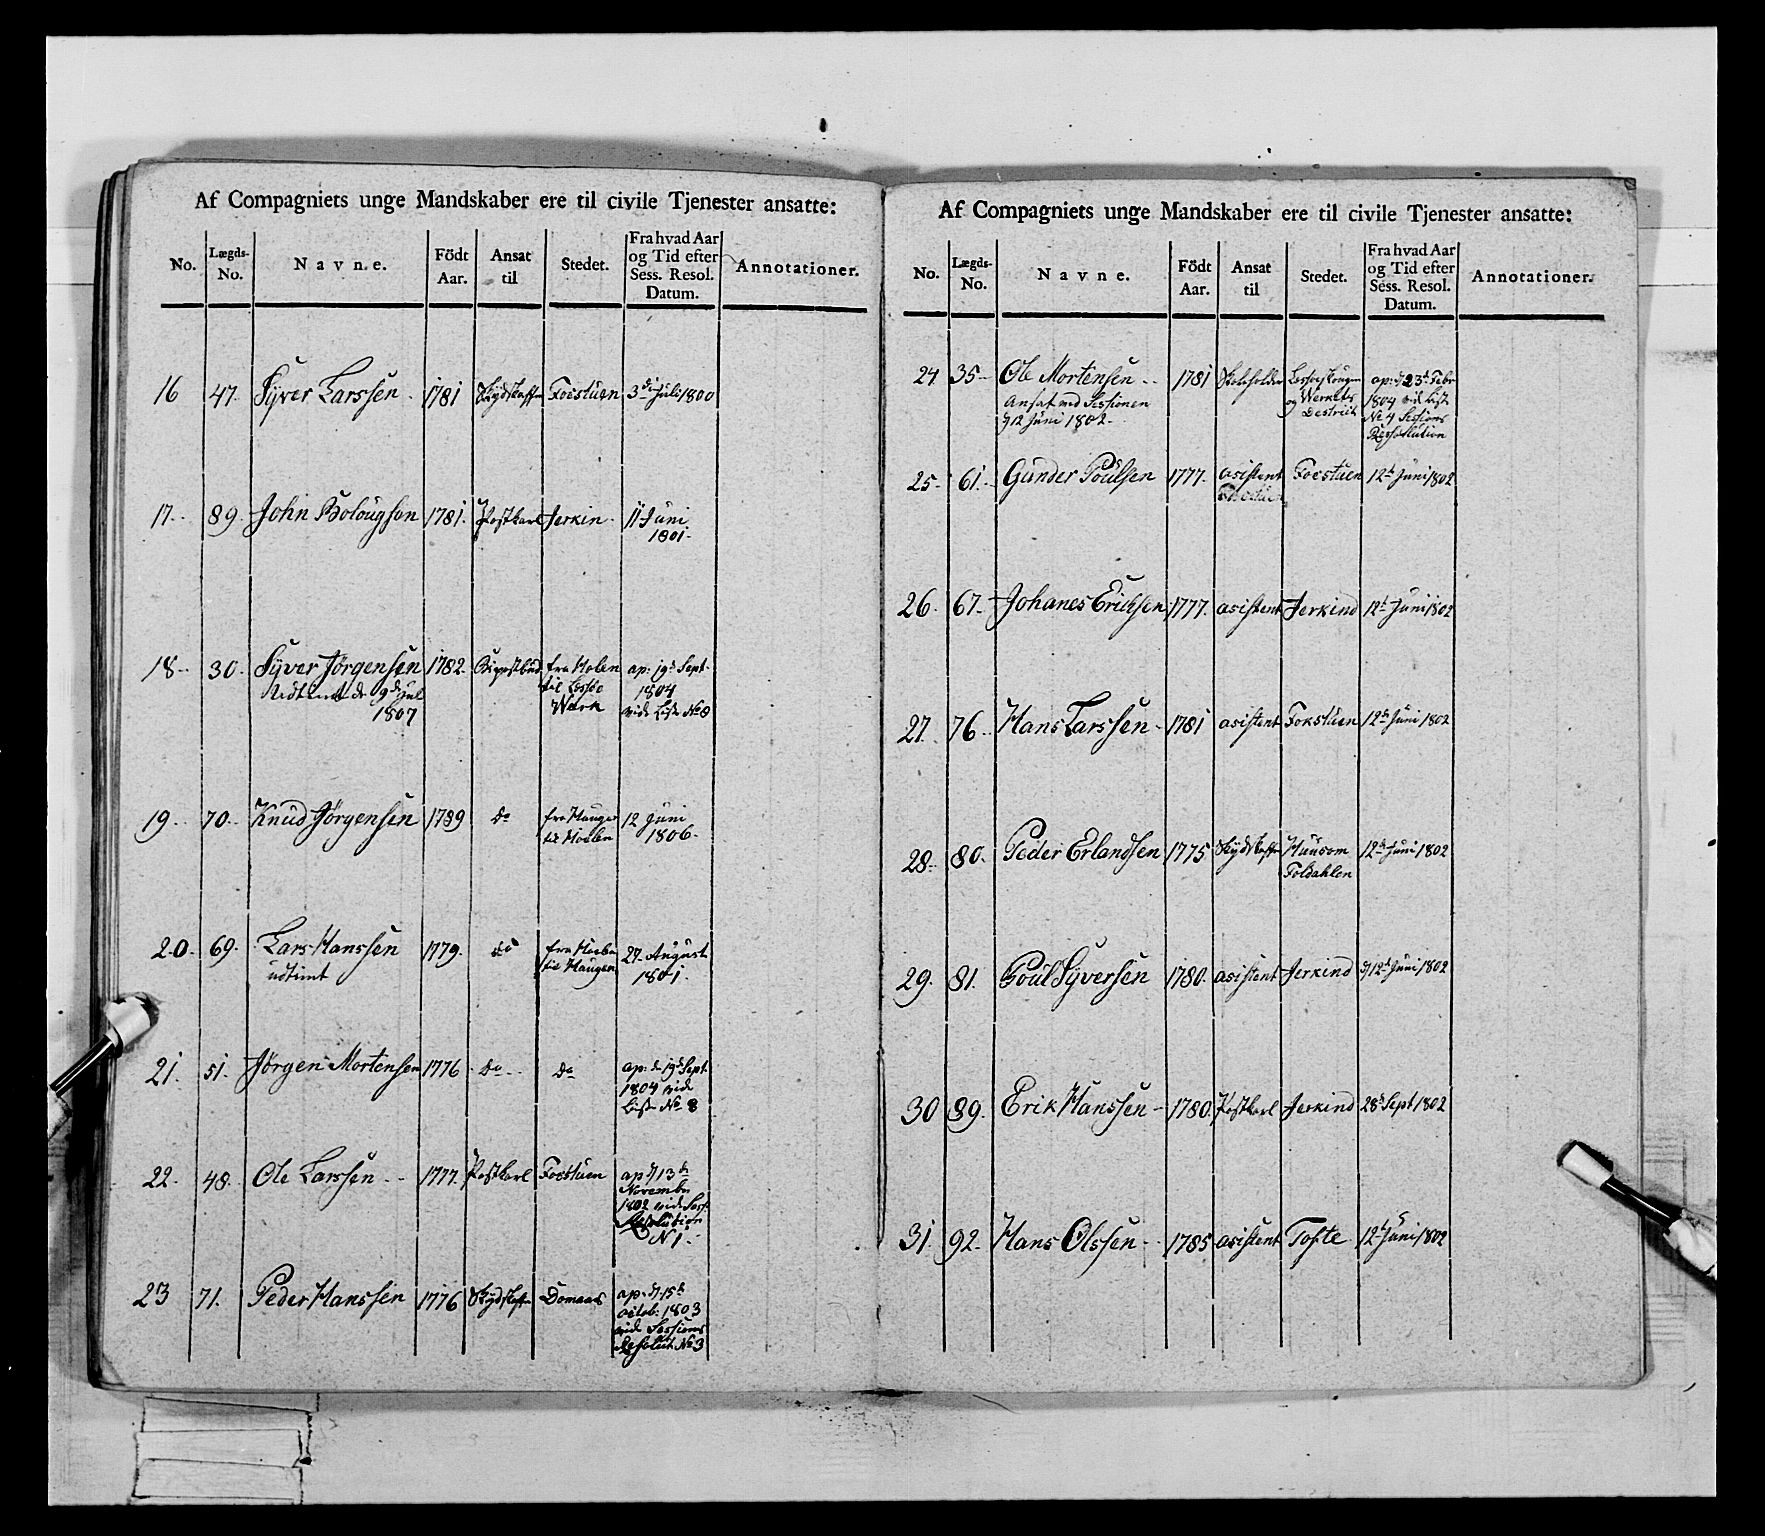 Af Compagniets unge Mandskaber ere til civile Tjenester ansatte:
No. Lægds-No. Navne. Födt Aar. Ansat til Stedet. Fra hvad Aar og Tid efter Sess. Resol. Datum. Annotationer.
16 47. Syver Larssen 1781 Skydskaffer Focstuen 3die Juli 1800
17. 89. John 1781. Postkarl Jerkin. 11 Juni
1801.
18. 30. Syver Jørgensen 1782. fra Holen ap: 19d Sept
9d Jul til Lessøe 1804
1807 Værk vide List No 8
19. 70. Knud Jørgensen 1789 do fra Haugen 12 Juni
til 1806.
20. 69. Lars Hanssen 1779. do fra 27. August
udtient til Haugen 1801.
21. 51. Jørgen Mortensen 1776 do do ap: d: 19d Sept
1804 vide
List No 8
22. 48. Ole Larssen 1777. Postkarl Focstuen ap 13de
November
1802 vide Sess:
Resolution
N 1.
23 71. Peder Hanssen 1776 Skydskaffer Domaas ap: 15de
octob: 1803
vide Sessions
Resolut: No 3
Af Compagniets unge Mandskaber ere til civile Tjenester ansatte:
No. Lægds-No. Navne. Födt Aar. Ansat til Stedet. Fra hvad Aar og Tid efter Sess. Resol. Datum. Annotationer.
24. 35 Ole Mortensen 1781 Skoleholder ap: 23de Febr
Ansat ved Sessionen og Werkets 1804 vide List
12 Juni 1802. Destrict No 4 Sessions
Resolution
25. 61. Gunder Poulsen 1777. asistent Focstuen 12te Juni 1802
26. 67. Johanes Ericksen 1777. asistent Jerkind 12te Juni 1802
27. 76. Hans Larssen 1781 asistent Fokstuen 12te Juni 1802
28. 80. Peder Erlandsen 1775 Skydskaffer 12te Juni 1802
Foldahlen
29. 81. Poul Syversen 1780. asistent Jerkind 12te Juni 1802
30 89. Erik Hanssen 1780. Postkarl Jerkind 28d Sept 1802
31. 92. Hans Olssen 1785 asistent Tofte 12te Juni 1802